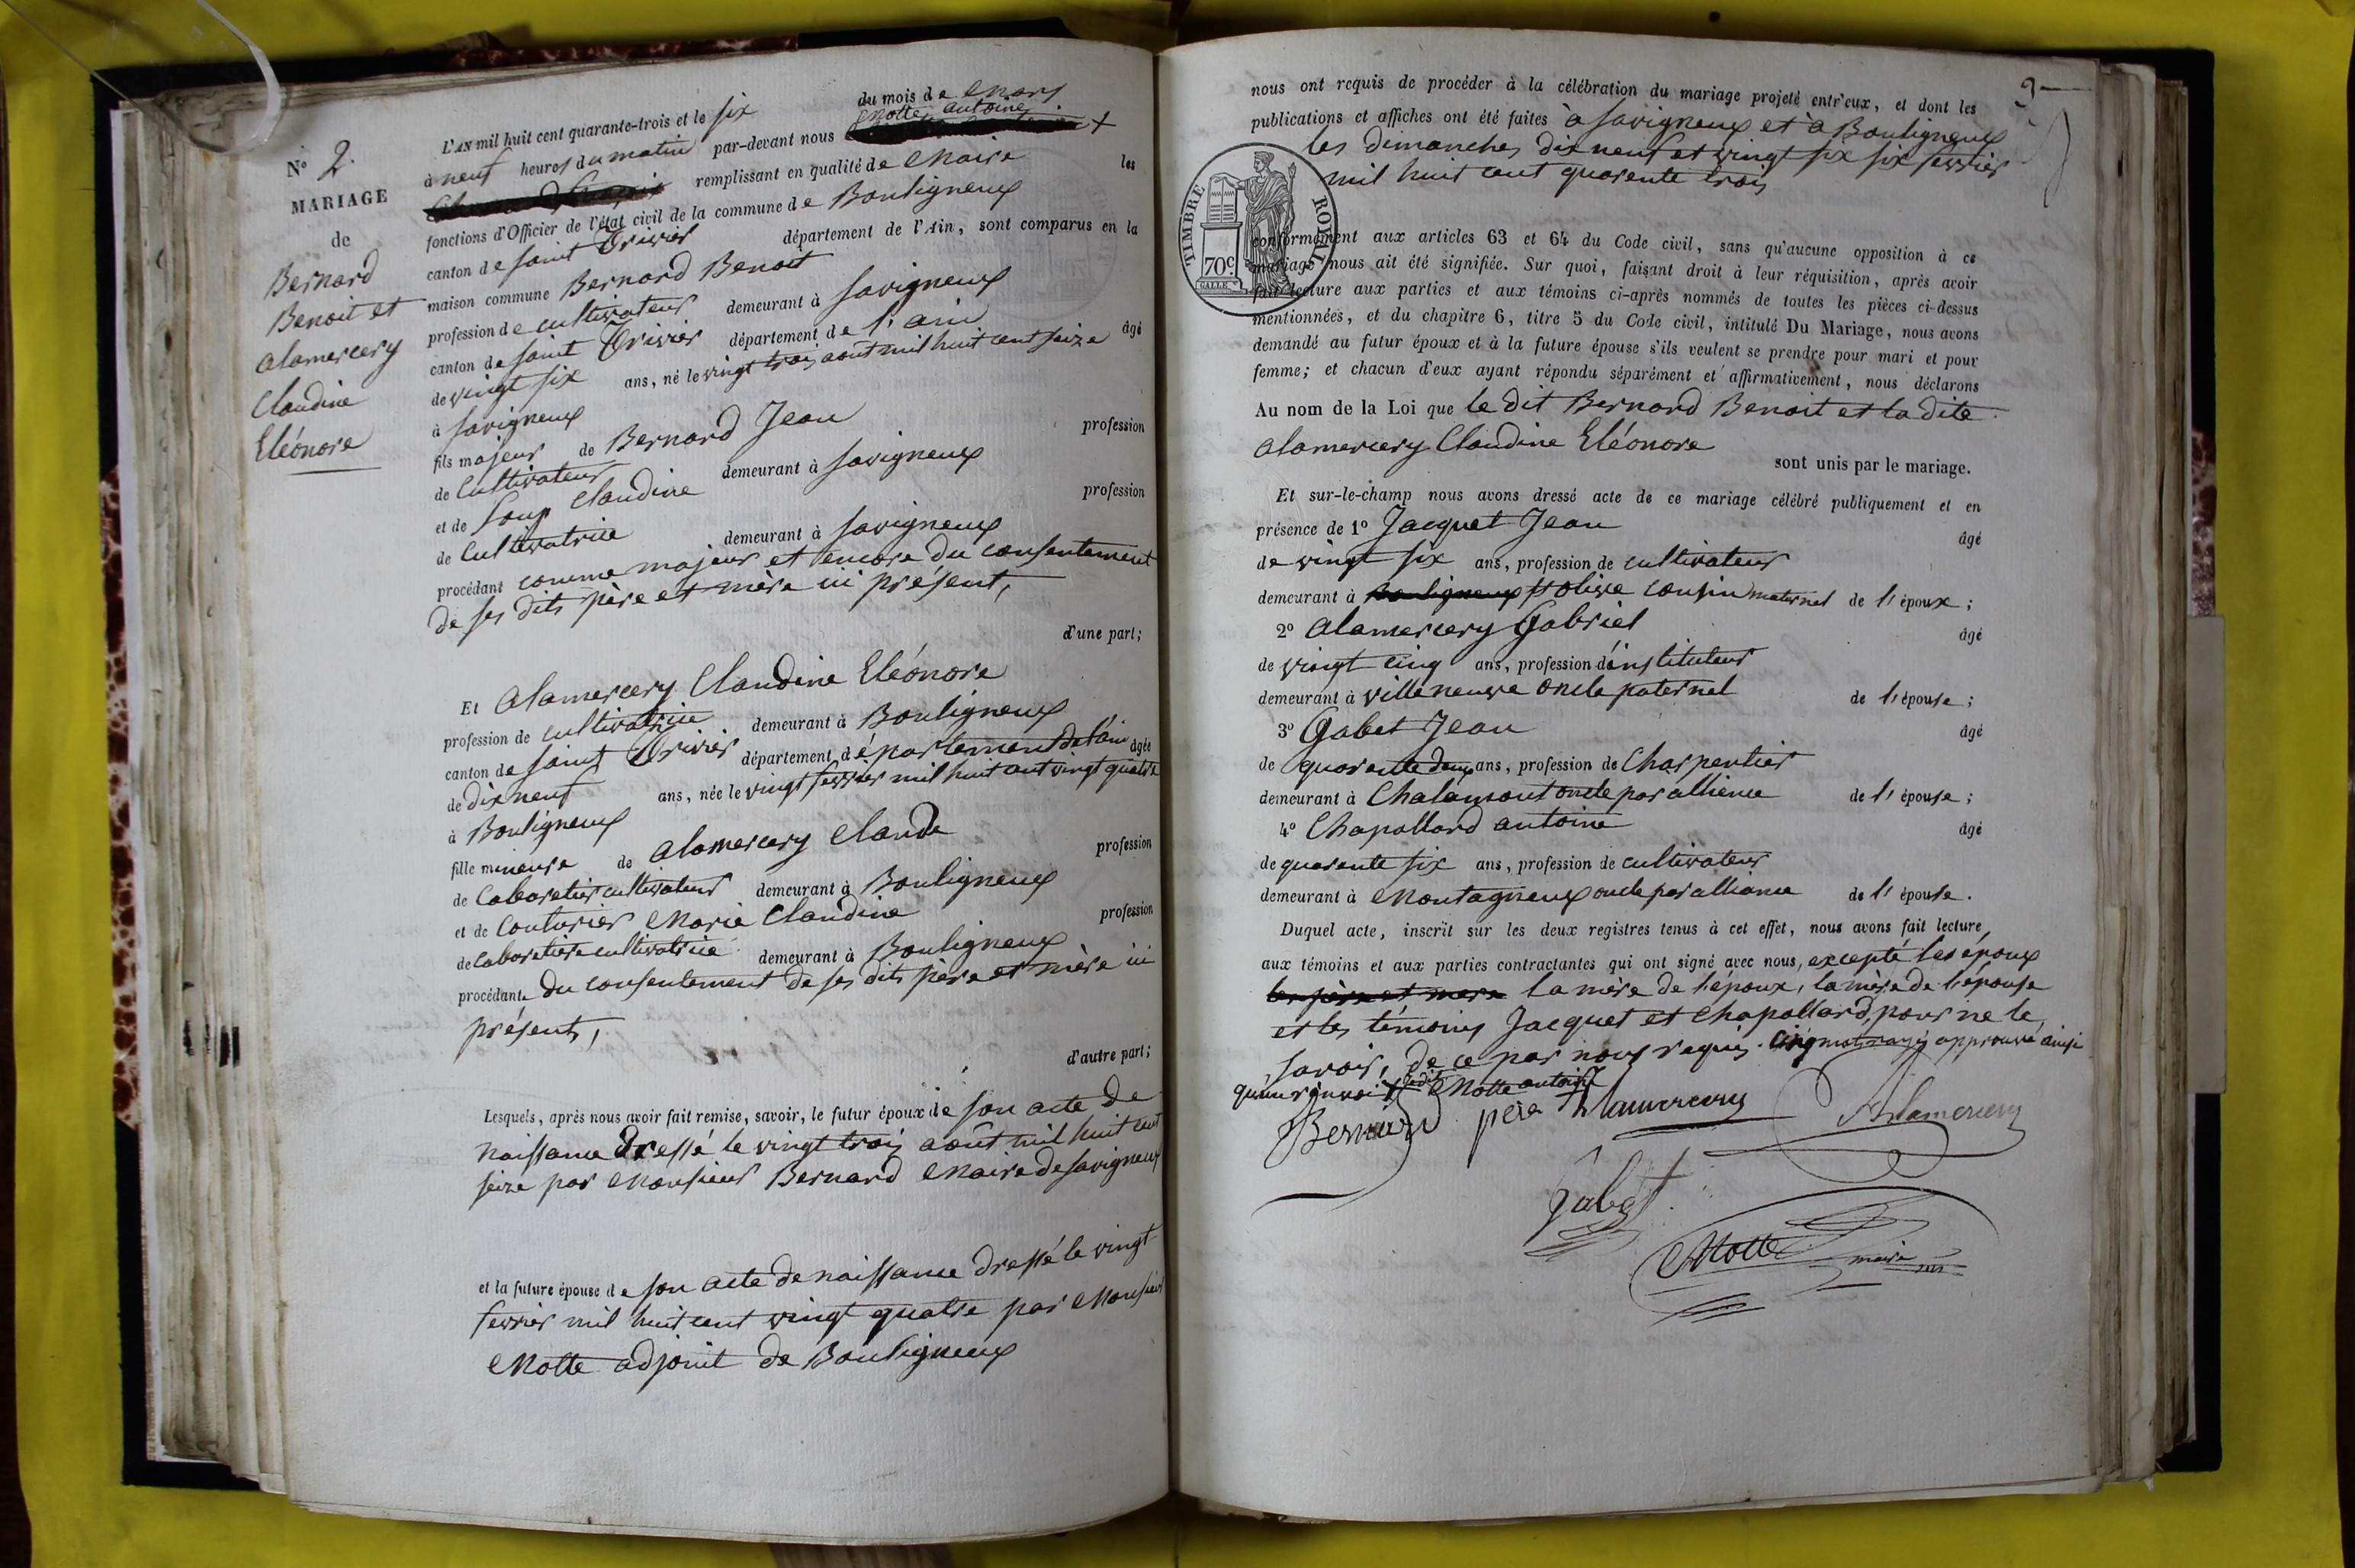 N° 2.
MARIAGE
de
Bernard
Benoit et
Alamercery
Claudine
Eléonore
L'AN mil huit cent quarante-trois et le six du mois de Mars
à neuf heures du matin par-devant nous Motte antoine +
remplissant en qualité de Maire les
fonctions d'Officier de l'état civil de la commune de Bouligneux
canton de saint Trivier département de l'Ain, sont comparus en la
maison commune Bernard Benoit
profession de cultivateur demeurant à savigneux
canton de saint Trivier département de l'ain âgé
de vingt six ans, né le vingt trois août mil huit cent seize
à savigneux
fils majeur de Bernard Jean profession
de Cultivateur demeurant à savigneux
et de Loup Claudine profession
de Cultivatrice demeurant à savigneux
procédant comme majeur et encore du consentement
de ses dits père et mère ici présent,
d'une part;
Et Alamercery Claudine Eléonore
profession de cultivatrice demeurant à Bouligneux
canton de saint Trivier département département de l'ain âgée
de dix neuf ans, née le vingt fevrier mil huit cent vingt quatre
à Bouligneux
fille mineure de Alamercery Claude profession
de Cabaretier cultivateur demeurant à Bouligneux
et de Couturier Marie Claudine profession
de Cabaretière cultivatrice demeurant à Bouligneux
procédante du consentement de ses dits père et mère ici
présents,
d'autre part;
Lesquels, après nous avoir fait remise, savoir, le futur époux de son acte de
naissance dressé le vingt trois août mil huit cent
seize par Monsieur Bernard Maire de savigneux
et la future épouse de son acte de naissance dressé le vingt
fevrier mil huit cent vingt quatre par Monsieur
Motte adjoint de Bouligneux
2
nous ont requis de procéder à la célébration du mariage projeté entr'eux, et dont les
publications et affiches ont été faites à savigneux et à Bouligneux
les dimanches dix neuf et vingt six six fevrier
mil huit cent quarente trois
TIMBRE ROYAL
70c
conformément aux articles 63 et 64 du Code civil, sans qu'aucune opposition à ce
mariage nous ait été signifiée. Sur quoi, faisant droit à leur réquisition, après avoir
fait lecture aux parties et aux témoins ci-après nommés de toutes les pièces ci-dessus
mentionnées, et du chapitre 6, titre 5 du Code civil, intitulé Du Mariage, nous avons
demandé au futur époux et à la future épouse s'ils veulent se prendre pour mari et pour
femme; et chacun d'eux ayant répondu séparément et affirmativement, nous déclarons
Au nom de la Loi que le dit Bernard Benoit et la dite
Alamercery Claudine Eléonore
sont unis par le mariage.
Et sur-le-champ nous avons dressé acte de ce mariage célébré publiquement et en
présence de 1° Jacquet Jean âgé
de vingt six ans, profession de cultivateur
demeurant à Bouligneux St olive cousin maternel de l'époux;
2° Alamercery Gabriel âgé
de vingt cinq ans, profession d'instituteur
demeurant à villeneuve oncle paternel de l'épouse;
3° Gabet Jean âgé
de quarente deux ans, profession de Charpentier
demeurant à Chalamont oncle par allience de l'épouse;
4° Chapollard antoine âgé
de quarente six ans, profession de cultivateur
demeurant à Montagneux oncle par alliance de l'épouse.
Duquel acte, inscrit sur les deux registres tenus à cet effet, nous avons fait lecture
aux témoins et aux parties contractantes qui ont signé avec nous, excepté les époux
les père et mere la mère de l'époux, la mère de l'épouse
et les témoins Jacquet et Chapollard, pour ne le
savoir, de ce par nous requis. Cinq mots rayés approuvé ainsi
Motte antoine
Bernard père Alamercery Alamercery
Gabet
Motte maire